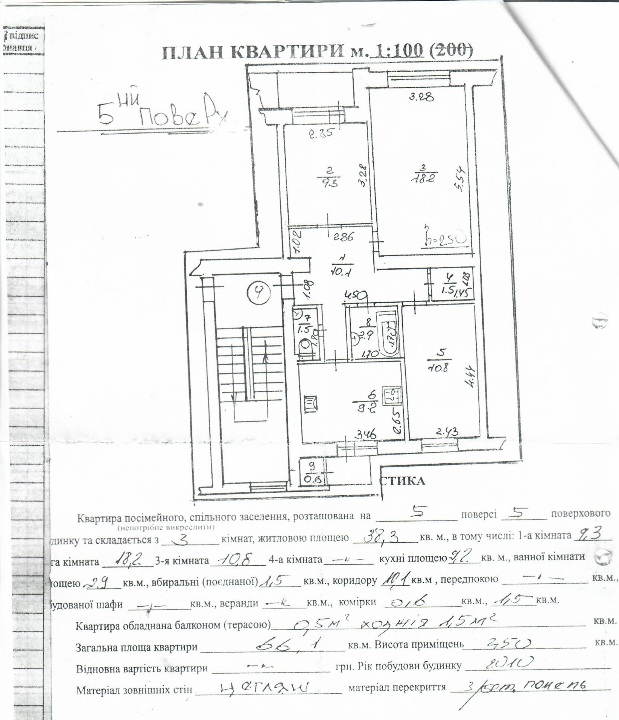 підпис
ПЛАН КВАРТИРИ м. 1:100 (200)
5 ий поверх
3.28
2.35
2
9.3
3.28
3
18.2
5.54
h=250
1.02
2.86
1
10.1
1.08
4
1.5
1.45
4.50
4
7
1.5
8
2.9
1.70
1.70
5
10.8
4.44
6
9.2
2.65
3.46
2.43
9
0.6
СТИКА
Квартира посімейного, спільного заселення, розташована на 5 поверсі 5 поверхового
(непотрібне викреслити)
динку та складається з 3 кімнат, житловою площею 38,3 кв. м., в тому числі: 1-а кімната 9,3
га кімната 18,2 3-я кімната 10,8 4-а кімната -"- кухні площею 9,2 кв. м., ванної кімнати
лощею 2,9 кв.м., вбиральні (поєднаної) 1,5 кв.м., коридору 10,1 кв.м , передпокою -"- кв.м.,
будованої шафи -"- кв.м., веранди -"- кв.м., комірки 0,6 кв.м., 1,5 кв.м.
Квартира обладнана балконом (терасою) 0,5м² лоджія 1,5м² кв.м.
Загальна площа квартири 66,1 кв.м. Висота приміщень 2,50 кв.м.
Відновна вартість квартири -"- грн. Рік побудови будинку 2010
Матеріал зовнішніх стін цегляні матеріал перекриття з/бет. панель